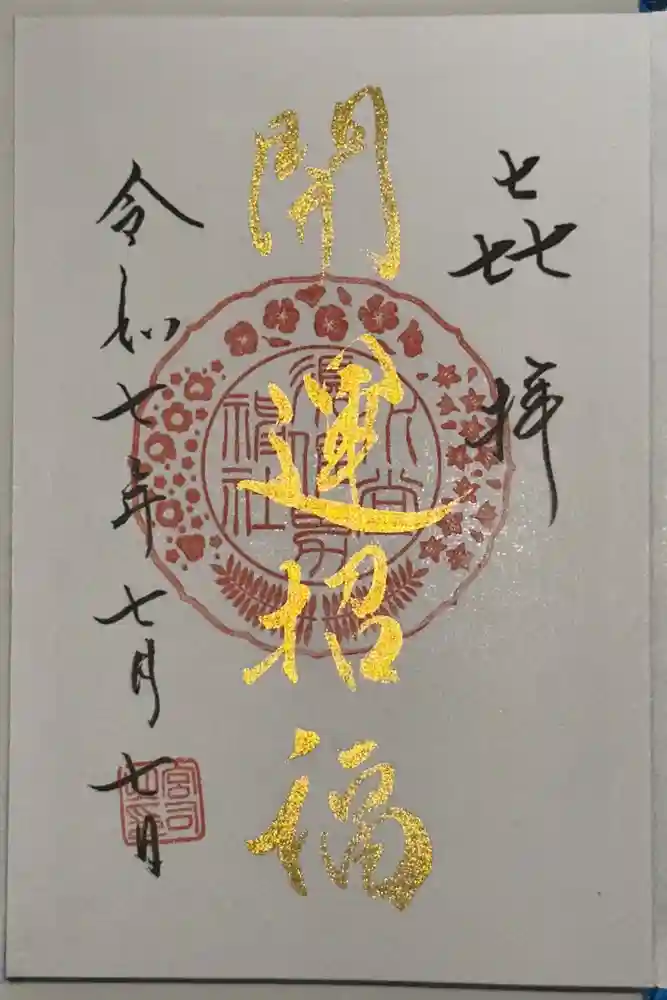 㐂 拝
開運招福
令和七年七月七日
神社
宮司
之印